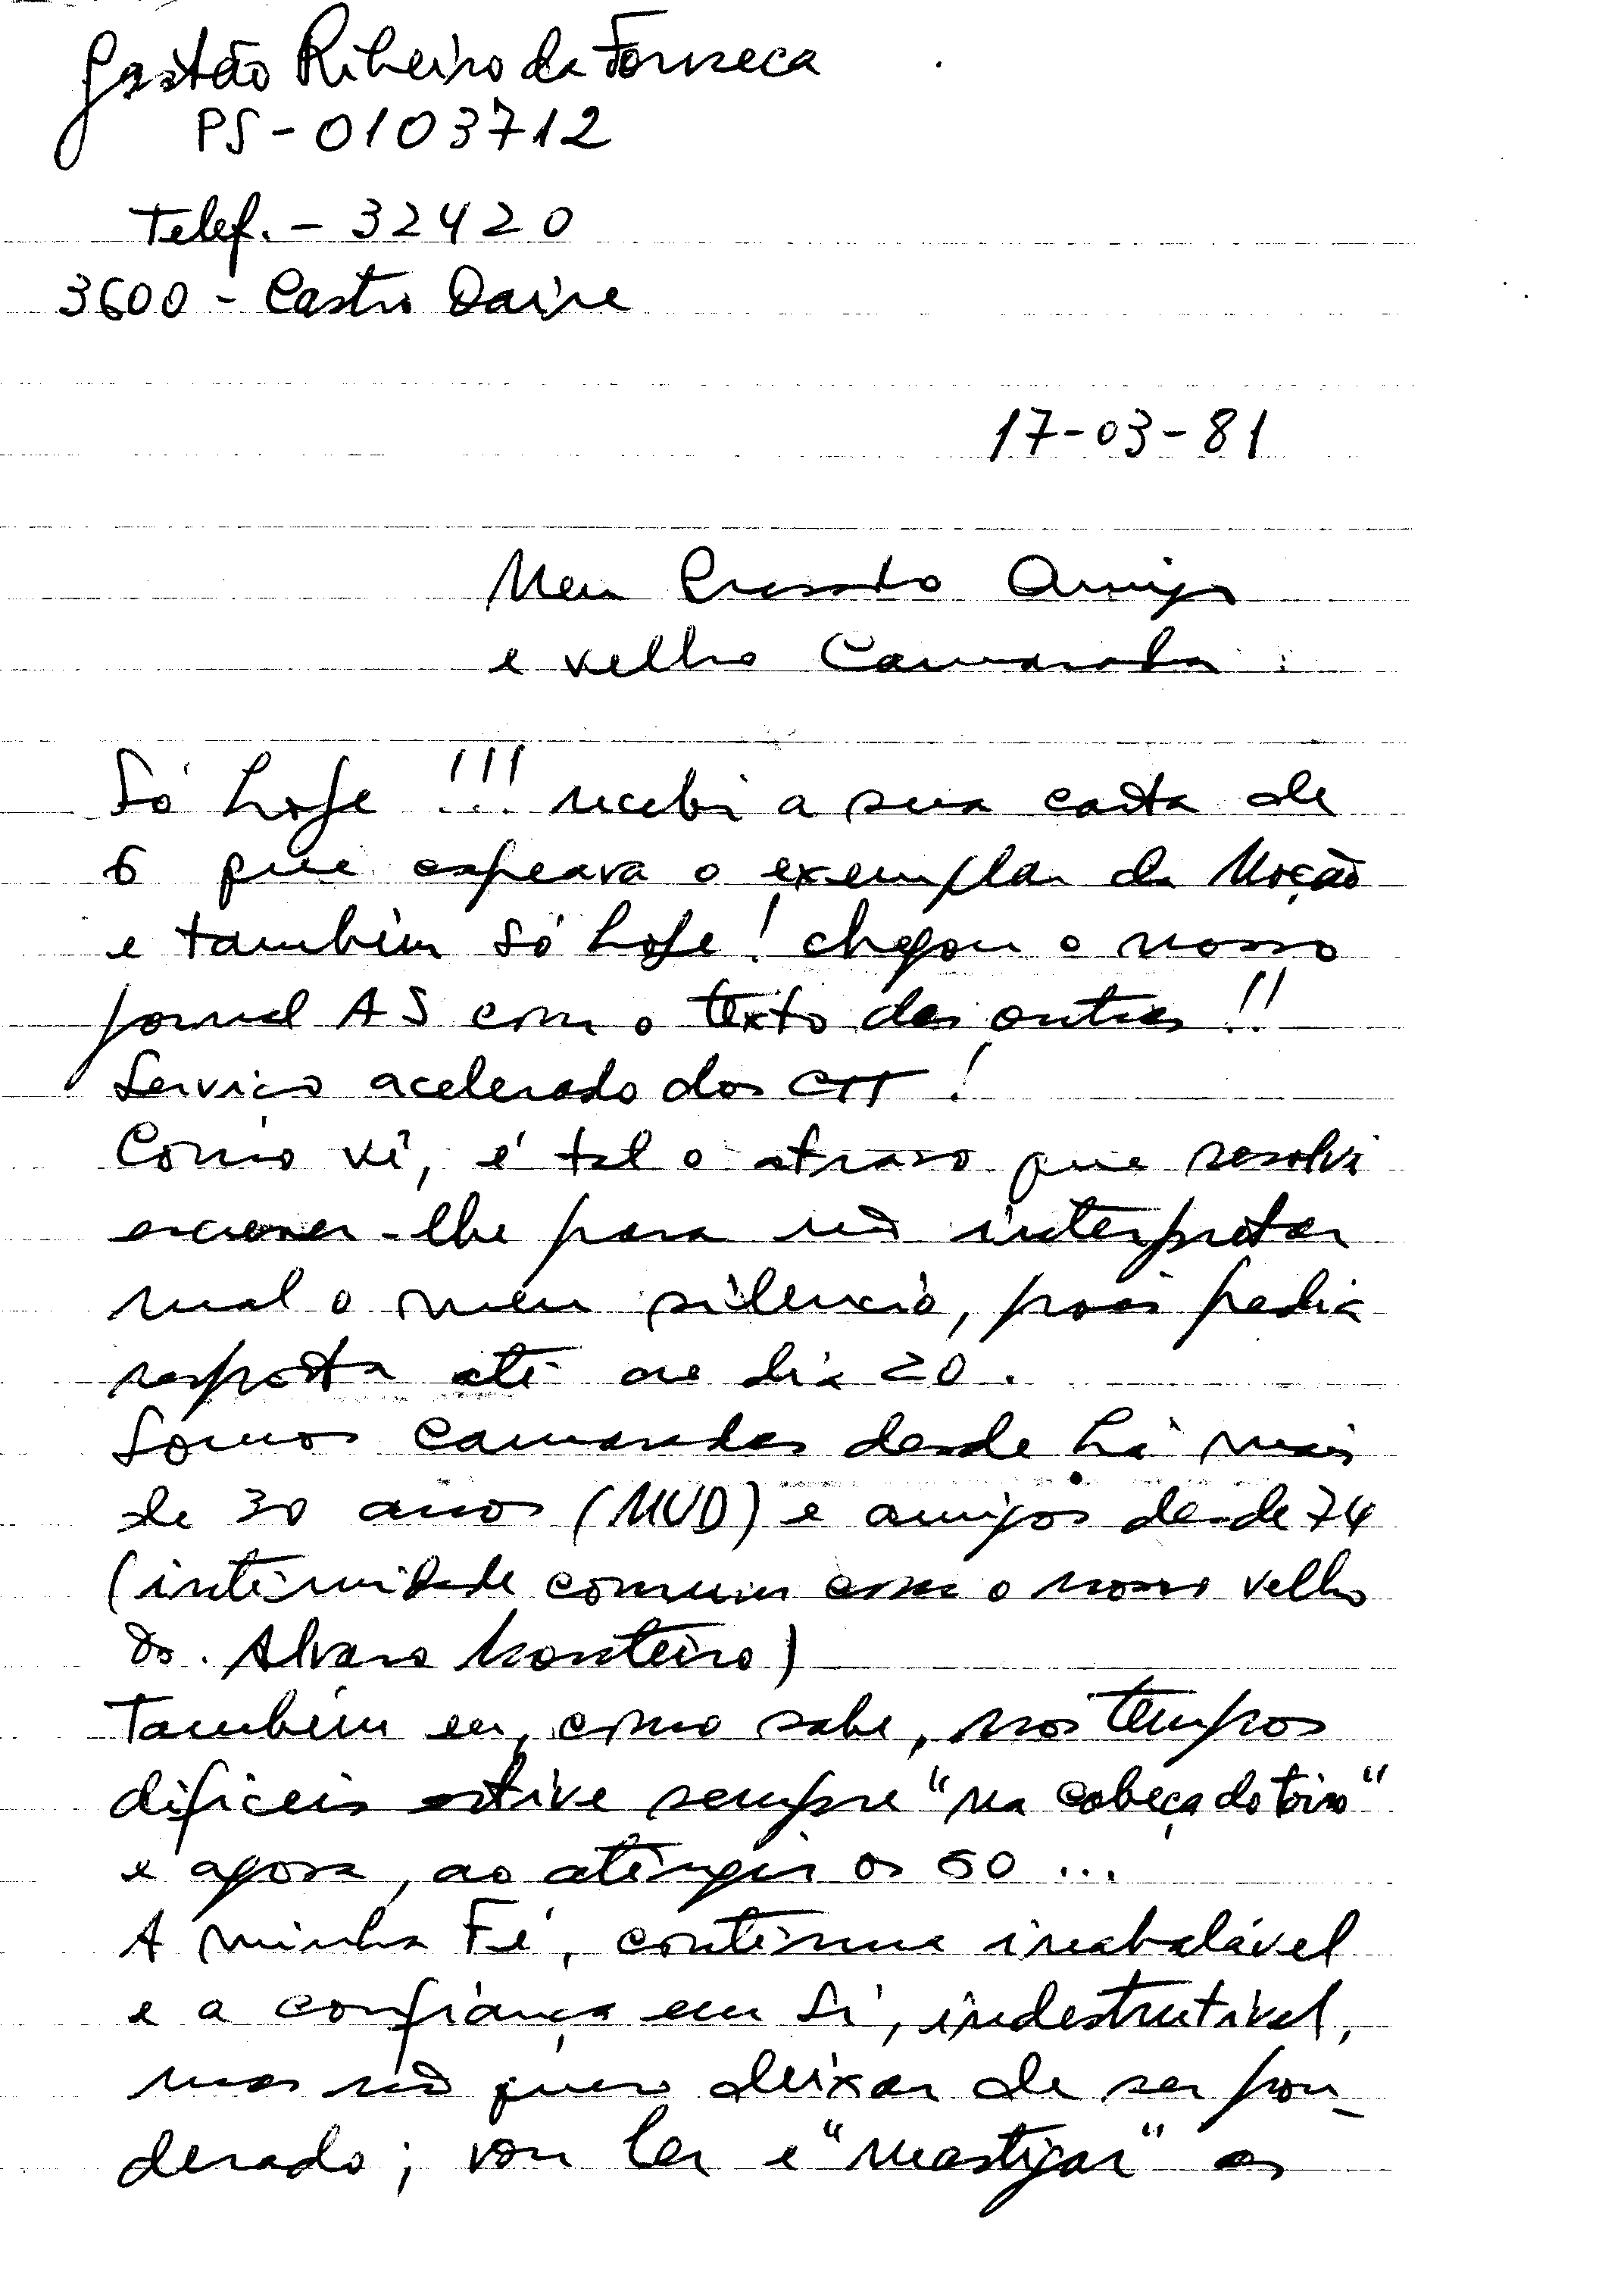 Gastão Ribeiro da Fonseca
PS - 0103712
Telef. - 32420
3600 - Castro Daire
17-03-81
Meu Prezado Amigo
e velho Camarada:
Só hoje!!! recebi a sua carta de
6 que capeava o exemplar da Moção
e também só hoje! chegou o nosso
jornal AS com o texto das outras!!
Serviço acelerado dos CTT!
Como vê, é tal o atraso que resolvi
escrever-lhe para não interpretar
mal o meu silêncio, pois pedia
resposta até ao dia 20.
Somos camaradas desde há mais
de 30 anos (MUD) e amigos desde 74
(intimidade comum com o nosso velho
Dr. Alvaro Monteiro)
Também eu, como sabe, nos tempos
difíceis estive sempre "na cabeça do toiro"
e agora, ao atingir os 60...
A minha Fé, continua inabalável
e a confiança em Si, indestrutível,
mas não quero deixar de ser pon-
derado; vou ler e "mastigar" as